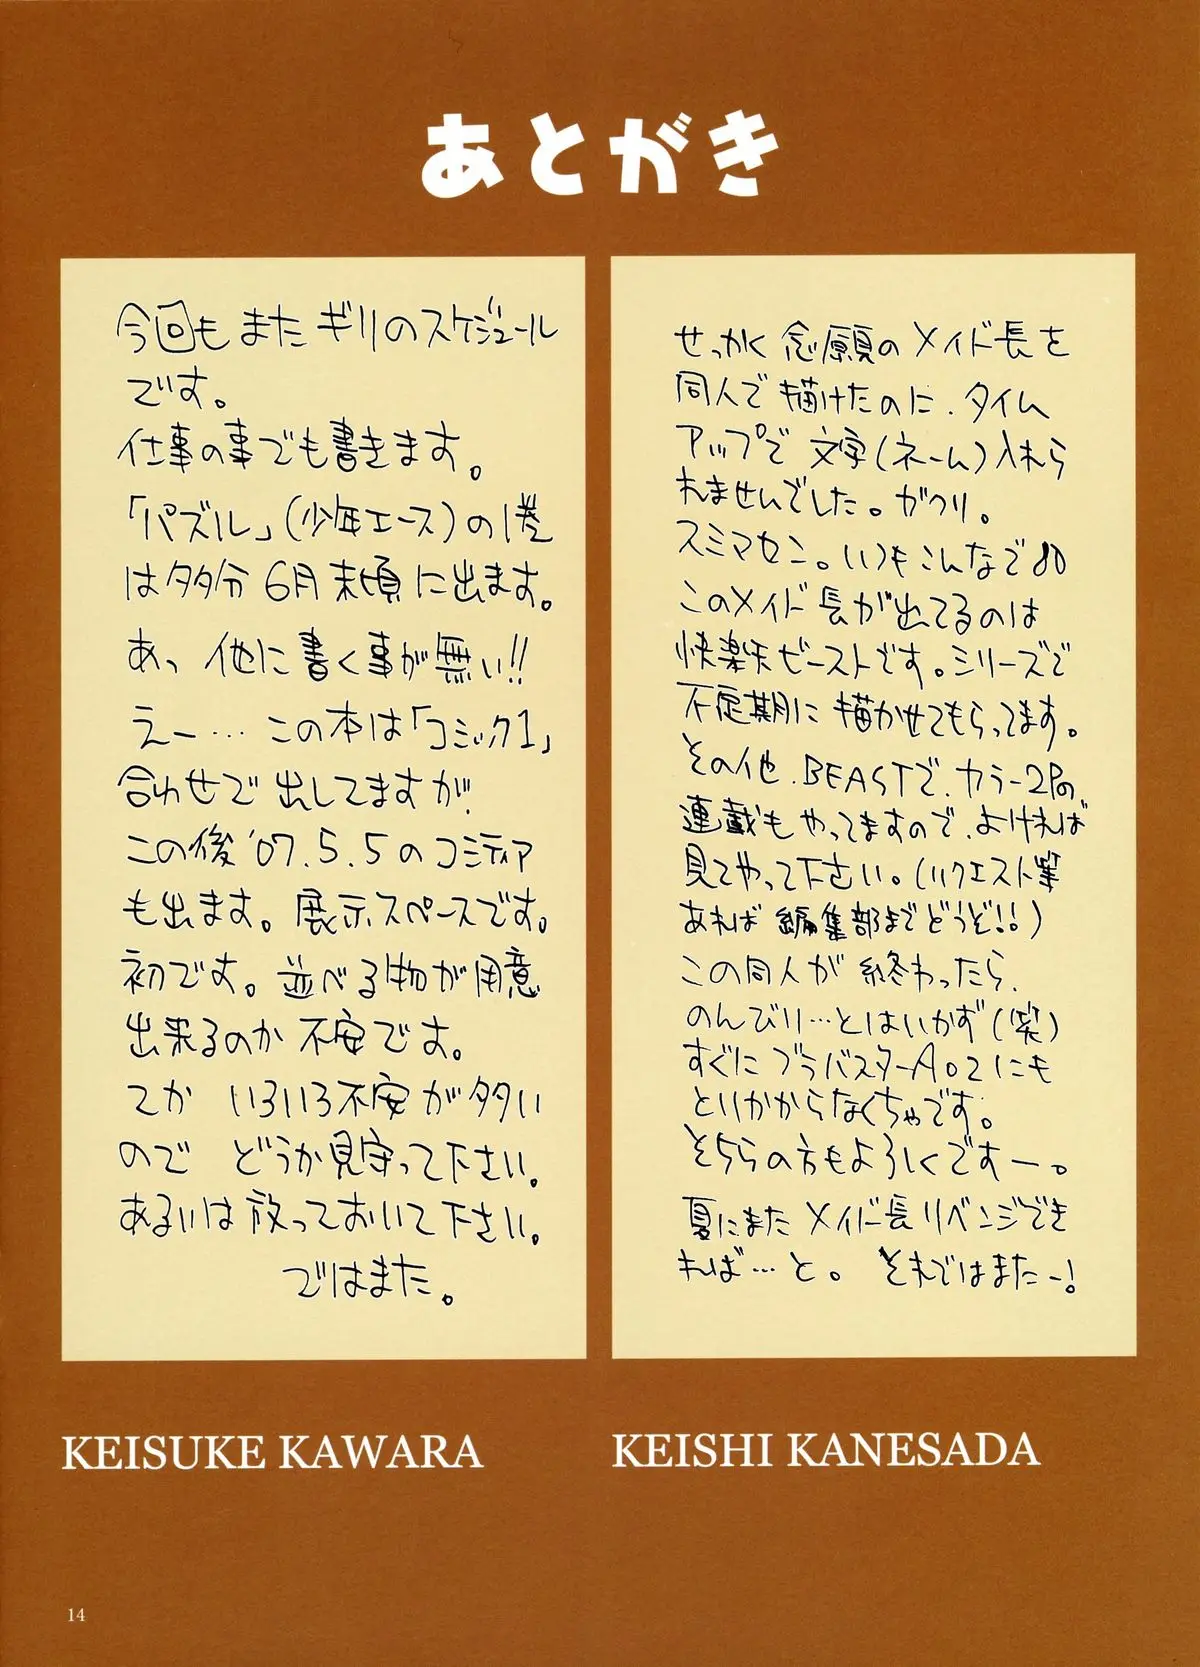 あとがき
今回もまた ギリのスケジュール
です。
仕事の事でも書きます。
「パズル」(少年エース)の1巻
は多分 6月末頃に出ます。
あっ 他に書く事が無い!!
えー… この本は「コミック1」
合わせで出してますが、
この後 '07.5.5のコミティア
も出ます。展示スペースです。
初です。並べる物が用意
出来るのか 不安です。
てか いろいろ不安が多い
ので どうか見守って下さい。
あるいは放っておいて下さい。
ではまた。
KEISUKE KAWARA
せっかく 念願の メイド長を
同人で描けたのに、タイム
アップで 文字(ネーム)入れら
れませんでした。ガクリ。
スミマセン。いつもこんなで
このメイド長が出てるのは
快楽天ビーストです。シリーズで
不定期に描かせてもらってます。
その他、BEASTで、カラー2Pの
連載もやってますので、よければ
見てやって下さい。(リクエスト等
あれば 編集部までどうぞ!!)
この同人が終わったら、
のんびり…とはいかず(笑)
すぐに ブラバスターA02にも
とりかからなくちゃです。
そちらの方もよろしくですー。
夏にまた メイド長リベンジでき
れば…と。 それではまたー!
KEISHI KANESADA
14